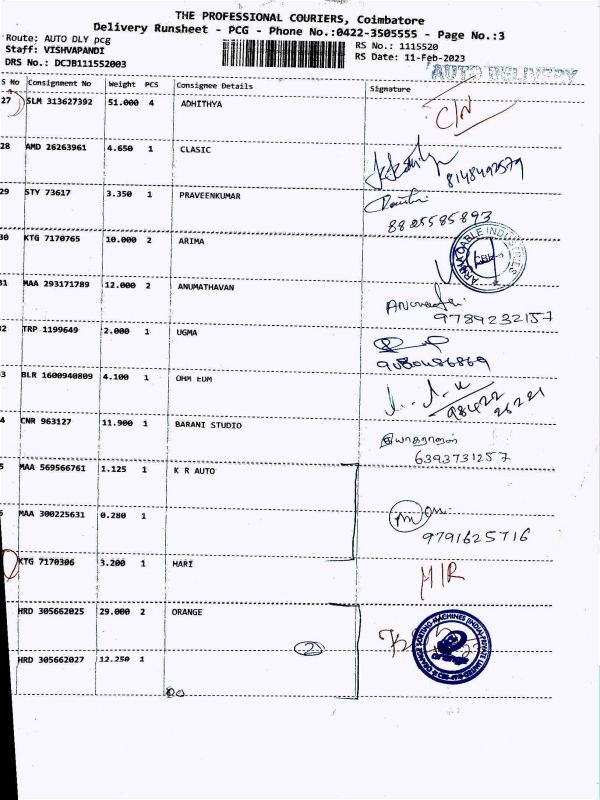 THE PROFESSIONAL COURIERS, Coimbatore
Delivery Runsheet - PCG - Phone No.:0422-3505555 - Page No.:3
Route: AUTO DLY pcg
Staff: VISHVAPANDI
DRS No.: DCJB111552003
RS No.: 1115520
RS Date: 11-Feb-2023
AUTO DELIVERY
S No Consignment No Weight PCS Consignee Details Signature
27 SLM 313627392 51.000 4 ADHITHYA C/N
28 AMD 26263961 4.650 1 CLASIC
8148492579
29 STY 73617 3.350 1 PRAVEENKUMAR
8825585893
30 KTG 7170765 10.000 2 ARIMA
31 MAA 293171789 12.000 2 ANUMATHAVAN
9789232157
2 TRP 1199649 2.000 1 UGMA
9080486869
3 BLR 1600940809 4.100 1 OHM EDM
98422 26221
4 CNR 963127 11.900 1 BARANI STUDIO
6393731257
5 MAA 569566761 1.125 1 K R AUTO
6 MAA 300225631 0.280 1
9791625716
KTG 7170306 3.200 1 HARI H/R
HRD 305662025 29.000 2 ORANGE
ORANGE SORTING MACHINES (INDIA) PRIVATE LIMITED
orange
2
HRD 305662027 12.250 1